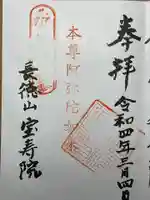 奉拝
令和四年三月四日
本尊阿弥陀如来
長徳山 宝寿院